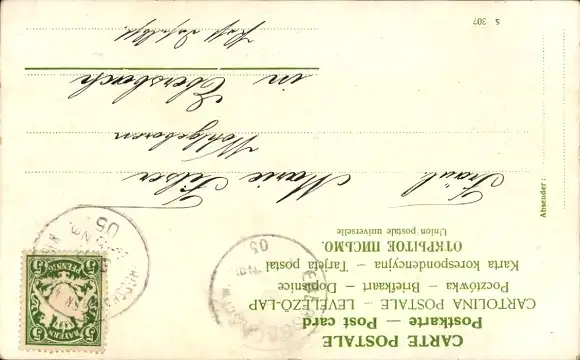 CARTE POSTALE
Postkarte — Post card
CARTOLINA POSTALE — LEVELEZÖ-LAP
Pocztówka — Briefkaart — Dopisnice
Karta korespondencyjna — Tarjeta postal
ОТКРЫТОЕ ПИСЬМО.
Union postale universelle
Absender:
Fräul. Marie Filser
Wohlgeboren
in Ebersbach
Post
S 307
5 PFENNIG 5
BAYERN
05
05